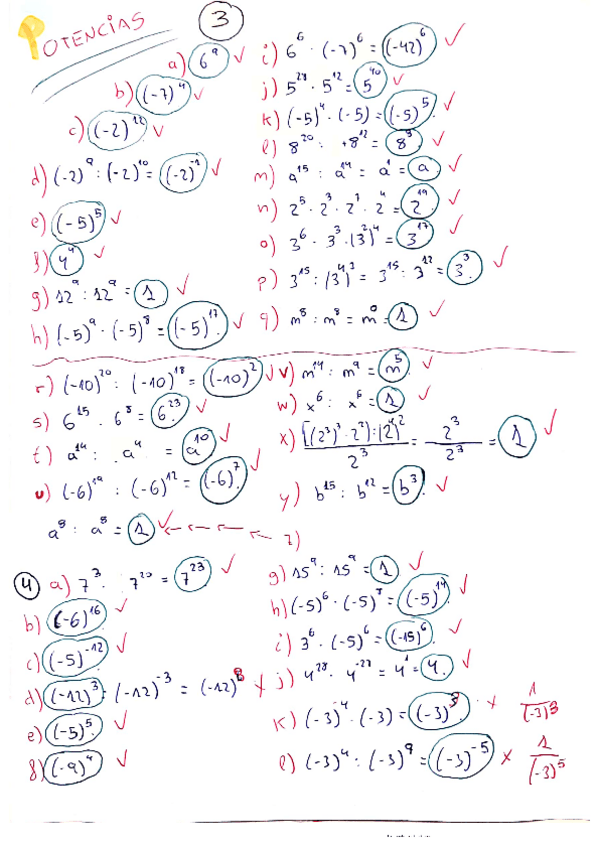 POTENCIAS
3
a) 6⁹ ✓
b) (-7)⁴ ✓
c) (-2)¹² ✓
d) (-2)⁹ : (-2)¹⁰ = (-2)⁻¹ ✓
e) (-5)⁵ ✓
f) 4⁴ ✓
g) 12⁹ : 12⁹ = 1 ✓
h) (-5)⁹ · (-5)⁸ = (-5)¹⁷ ✓
i) 6⁶ · (-7)⁶ = (-42)⁶ ✓
j) 5²⁸ · 5¹² = 5⁴⁰ ✓
k) (-5)⁴ · (-5) = (-5)⁵ ✓
l) 8²⁰ : 8¹² = 8⁸ ✓
m) a¹⁵ : a¹⁴ = a¹ = a ✓
n) 2⁵ · 2³ · 2⁷ · 2⁴ = 2¹⁹ ✓
o) 3⁶ · 3³ · (3²)⁴ = 3¹⁷ ✓
p) 3¹⁵ : (3⁴)³ = 3¹⁵ : 3¹² = 3³ ✓
q) m⁸ : m⁸ = m⁰ = 1 ✓
r) (-10)²⁰ : (-10)¹⁸ = (-10)² ✓
s) 6¹⁵ · 6⁸ = 6²³ ✓
t) a¹⁴ : a⁴ = a¹⁰ ✓
u) (-6)¹⁹ : (-6)¹² = (-6)⁷ ✓
a⁸ : a⁸ = 1 ✓ ← ← ← ← z)
v) m¹⁴ : m⁹ = m⁵ ✓
w) x⁶ : x⁶ = 1 ✓
x) [(2³)³ · 2²) : (2⁴)² / 2³ = 2³ / 2³ = 1 ✓
y) b¹⁵ : b¹² = b³ ✓
4
a) 7³ · 7²⁰ = 7²³ ✓
b) (-6)¹⁶ ✓
c) (-5)⁻¹² ✓
d) (-12)³ · (-12)⁻³ = (-12) ×
e) (-5)⁵ ✓
f) (-9)⁴ ✓
g) 15⁹ : 15⁹ = 1 ✓
h) (-5)⁶ · (-5)⁸ = (-5)¹⁴ ✓
i) 3⁶ · (-5)⁶ = (-15)⁶ ✓
j) 4²⁸ · 4⁻²⁷ = 4¹ = 4 ✓
k) (-3)⁻⁴ · (-3) = (-3)³ × 1 / (-3)³
l) (-3)⁴ : (-3)⁹ = (-3)⁻⁵ × 1 / (-3)⁵